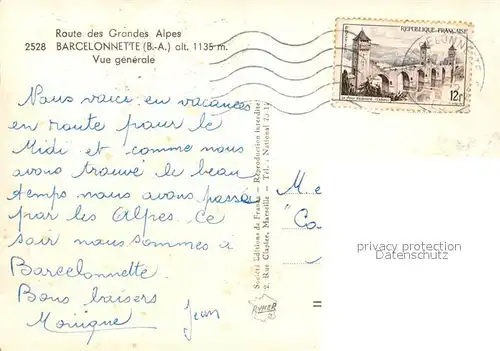 Route des Grandes Alpes
2528 BARCELONNETTE (B.-A.) alt. 1135 m.
Vue générale
REPUBLIQUE FRANÇAISE
12F
Nous voici en vacances
en route pour le
Midi et comme nous
avons trouvé le beau
temps nous avons passés
par les Alpes. Ce
soir nous sommes à
Barcelonnette.
Bons baisers
Monique Jean
Société Editions de France - Reproduction Interdite
2, Rue Clapier, Marseille - Tél. : National
M. e
"Ca
privacy protection
Datenschutz